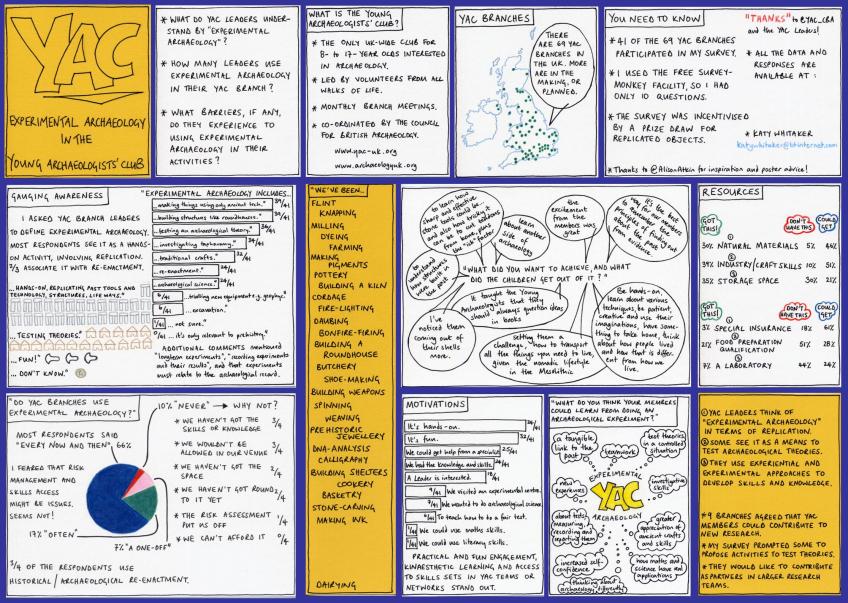 YAC
EXPERIMENTAL ARCHAEOLOGY
IN THE
YOUNG ARCHAEOLOGISTS' CLUB
* WHAT DO YAC LEADERS UNDER-
STAND BY "EXPERIMENTAL
ARCHAEOLOGY"?
* HOW MANY LEADERS USE
EXPERIMENTAL ARCHAEOLOGY
IN THEIR YAC BRANCH?
* WHAT BARRIERS, IF ANY,
DO THEY EXPERIENCE TO
USING EXPERIMENTAL
ARCHAEOLOGY IN THEIR
ACTIVITIES?
WHAT IS THE YOUNG
ARCHAEOLOGISTS' CLUB?
* THE ONLY UK-WIDE CLUB FOR
8- to 17-YEAR OLDS INTERESTED
IN ARCHAEOLOGY.
* LED BY VOLUNTEERS FROM ALL
WALKS OF LIFE.
* MONTHLY BRANCH MEETINGS.
* CO-ORDINATED BY THE COUNCIL
FOR BRITISH ARCHAEOLOGY.
www.yac-uk.org
www.archaeologyuk.org
YAC BRANCHES
THERE
ARE 69 YAC
BRANCHES IN
THE UK. MORE
ARE IN THE
MAKING, OR
PLANNED.
YOU NEED TO KNOW
"THANKS" to @YAC_CBA
and the YAC Leaders!
* 41 OF THE 69 YAC BRANCHES
PARTICIPATED IN MY SURVEY.
* I USED THE FREE SURVEY-
MONKEY FACILITY, SO I HAD
ONLY 10 QUESTIONS.
* THE SURVEY WAS INCENTIVISED
BY A PRIZE DRAW FOR
REPLICATED OBJECTS.
* ALL THE DATA AND
RESPONSES ARE
AVAILABLE AT:
* KATY WHITAKER
katywhitaker@btinternet.com
* Thanks to @AlisonAtkin for inspiration and poster advice!
GAUGING AWARENESS
I ASKED YAC BRANCH LEADERS
TO DEFINE EXPERIMENTAL ARCHAEOLOGY.
MOST RESPONDENTS SEE IT AS A HANDS-
ON ACTIVITY, INVOLVING REPLICATION.
2/3 ASSOCIATE IT WITH RE-ENACTMENT.
...HANDS-ON, REPLICATING PAST TOOLS AND
TECHNOLOGY, STRUCTURES, LIFE WAYS."
...TESTING THEORIES."
...FUN!"
... DON'T KNOW."
"EXPERIMENTAL ARCHAEOLOGY INCLUDES...
...making things using only ancient tech."
...building structures like roundhouses."
...testing an archaeological theory."
...investigating taphonomy."
...traditional crafts."
...re-enactment."
...archaeological science."
6/41 ...trialling new equipment e.g. geophys."
6/41 ...excavation.
1/41 ...not sure."
0/41 ...it's only relevant to prehistory."
ADDITIONAL COMMENTS mentioned
"longterm experiments", "recording experiments
and their results", and that experiments
must relate to the archaeological record.
"WE'VE BEEN..
FLINT
KNAPPING
MILLING
DYEING
FARMING
MAKING
PIGMENTS
POTTERY
BUILDING A KILN
CORDAGE
FIRE-LIGHTING
DAUBING
BONFIRE-FIRING
BUILDING A
ROUNDHOUSE
BUTCHERY
SHOE-MAKING
BUILDING WEAPONS
SPINNING
WEAVING
PREHISTORIC
JEWELLERY
DNA-ANALYSIS
CALLIGRAPHY
BUILDING SHELTERS
COOKERY
BASKETRY
STONE-CARVING
MAKING INK
DAIRYING
to learn how
sharp and effective
stone tools could be...
and also how tricky it
can be to cut sodden
bone, plus
the "ick" factor
to understand
how structures
were built in
the past
learn about
another side of
archaeology
the
excitement
from the
members
was great
it's the best
way for our members
to remember the
principles of finding out
about the past
from evidence
"WHAT DID YOU WANT TO ACHIEVE, AND WHAT
DID THE CHILDREN GET OUT OF IT?"
I've
noticed them
coming out of
their shells
more.
It taught the Young
Archaeologists that they
should always question ideas
in books
setting them a
challenge, how to transport
all the things you need to live,
given the nomadic lifestyle
in the Mesolithic
Be hands-on,
learn about various
techniques, be patient,
creative and use their
imaginations, have some-
thing to take home, think
about how people lived
and how that is differ-
ent from how we
live.
RESOURCES
GOT THIS!
DON'T HAVE THIS
COULD GET
30% NATURAL MATERIALS 5% 44%
39% INDUSTRY/CRAFT SKILLS 10% 51%
35% STORAGE SPACE 30% 21%
GOT THIS!
DON'T HAVE THIS
COULD GET
3% SPECIAL INSURANCE 18% 61%
21% FOOD PREPARATION QUALIFICATION 51% 28%
7% A LABORATORY 24% 24%
"DO YAC BRANCHES USE
EXPERIMENTAL ARCHAEOLOGY?"
MOST RESPONDENTS SAID
"EVERY NOW AND THEN" 66%
I FEARED THAT RISK
MANAGEMENT AND
SKILLS ACCESS
MIGHT BE ISSUES.
SEEMS NOT!
17% "OFTEN"
7% "A ONE-OFF"
10% "NEVER" → WHY NOT?
* WE HAVEN'T GOT THE
SKILLS OR KNOWLEDGE 3/4
* WE WOULDN'T BE
ALLOWED IN OUR VENUE 3/4
* WE HAVEN'T GOT THE
SPACE 2/4
* WE HAVEN'T GOT ROUND
TO IT YET 2/4
* THE RISK ASSESSMENT
PUT US OFF 1/4
* WE CAN'T AFFORD IT 0/4
3/4 OF THE RESPONDENTS USE
HISTORICAL/ARCHAEOLOGICAL RE-ENACTMENT.
MOTIVATIONS
It's hands-on.
It's fun.
We could get help from a specialist
We had the knowledge and skills.
A Leader is interested.
9/41 We visited an experimental centre.
9/41 We wanted to do archaeological science.
6/41 To teach how to do a fair test.
1/41 We could use maths skills.
1/41 We could use literacy skills.
PRACTICAL AND FUN ENGAGEMENT,
KINAESTHETIC LEARNING AND ACCESS
TO SKILLS SETS IN YAC TEAMS OR
NETWORKS STAND OUT.
"WHAT DO YOU THINK YOUR MEMBERS
COULD LEARN FROM DOING AN
ARCHAEOLOGICAL EXPERIMENT?"
a tangible
link to the
past
teamwork
test theories
in a controlled
situation
new
experiences
EXPERIMENTAL
YAC
ARCHAEOLOGY
investigative
skills
about tests,
measuring,
recording and
reporting them
greater
appreciation of
ancient crafts
and skills
increased self-
confidence
thinking about
archaeology differently
how maths and
science have real
applications
① YAC LEADERS THINK OF
"EXPERIMENTAL ARCHAEOLOGY"
IN TERMS OF REPLICATION.
② SOME SEE IT AS A MEANS TO
TEST ARCHAEOLOGICAL THEORIES.
③ THEY USE EXPERIENTIAL AND
EXPERIMENTAL APPROACHES TO
DEVELOP SKILLS AND KNOWLEDGE.
* 9 BRANCHES AGREED THAT YAC
MEMBERS COULD CONTRIBUTE TO
NEW RESEARCH.
* MY SURVEY PROMPTED SOME TO
PROPOSE ACTIVITIES TO TEST THEORIES.
* THEY WOULD LIKE TO CONTRIBUTE
AS PARTNERS IN LARGER RESEARCH
TEAMS.